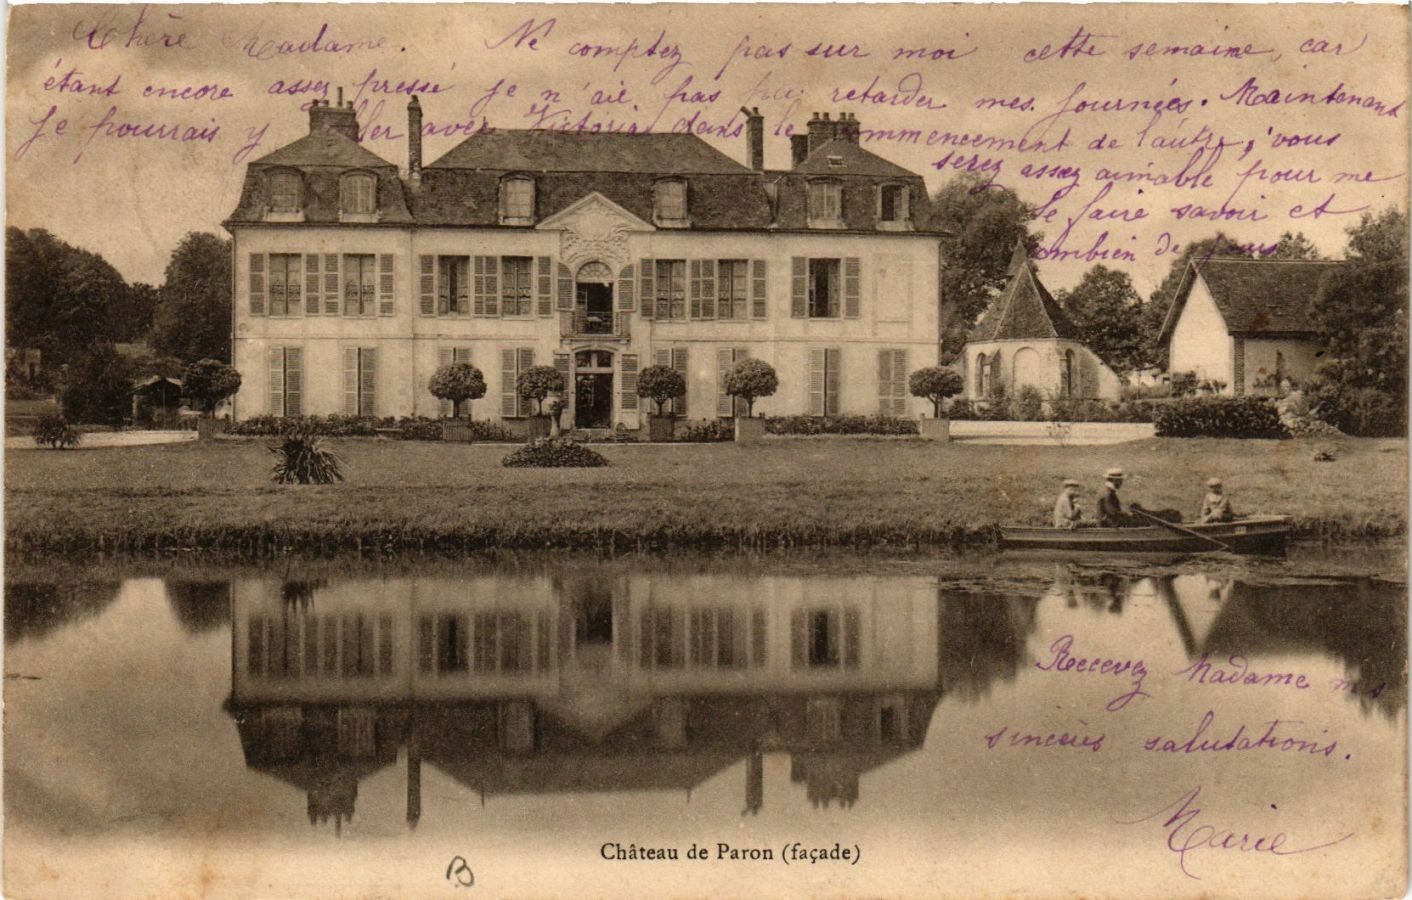 Chère Madame. Ne comptez pas sur moi cette semaine, car
étant encore assez pressé je n'ai pas pu retarder mes journées. Maintenant
je pourrais y aller avec Victoria dans le commencement de l'autre, vous
serez assez aimable pour me
le faire savoir et
combien de jours
Recevez Madame mes
sincères salutations.
Marie
Château de Paron (façade)
B